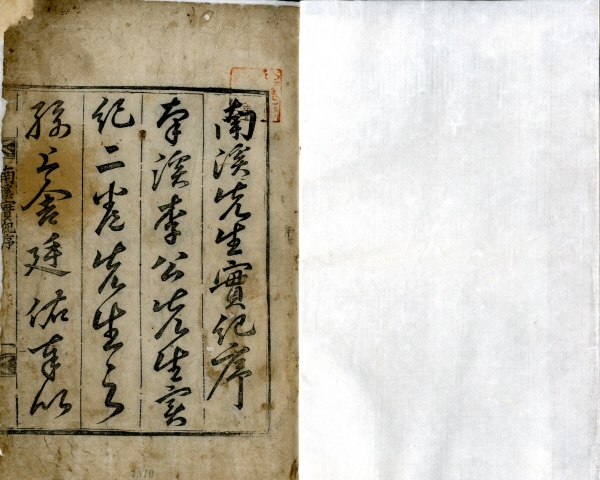 南溪先生實紀序
南溪李公先生實
紀二卷先生之
孫上舍廷佑奉以
南溪實紀序
7370